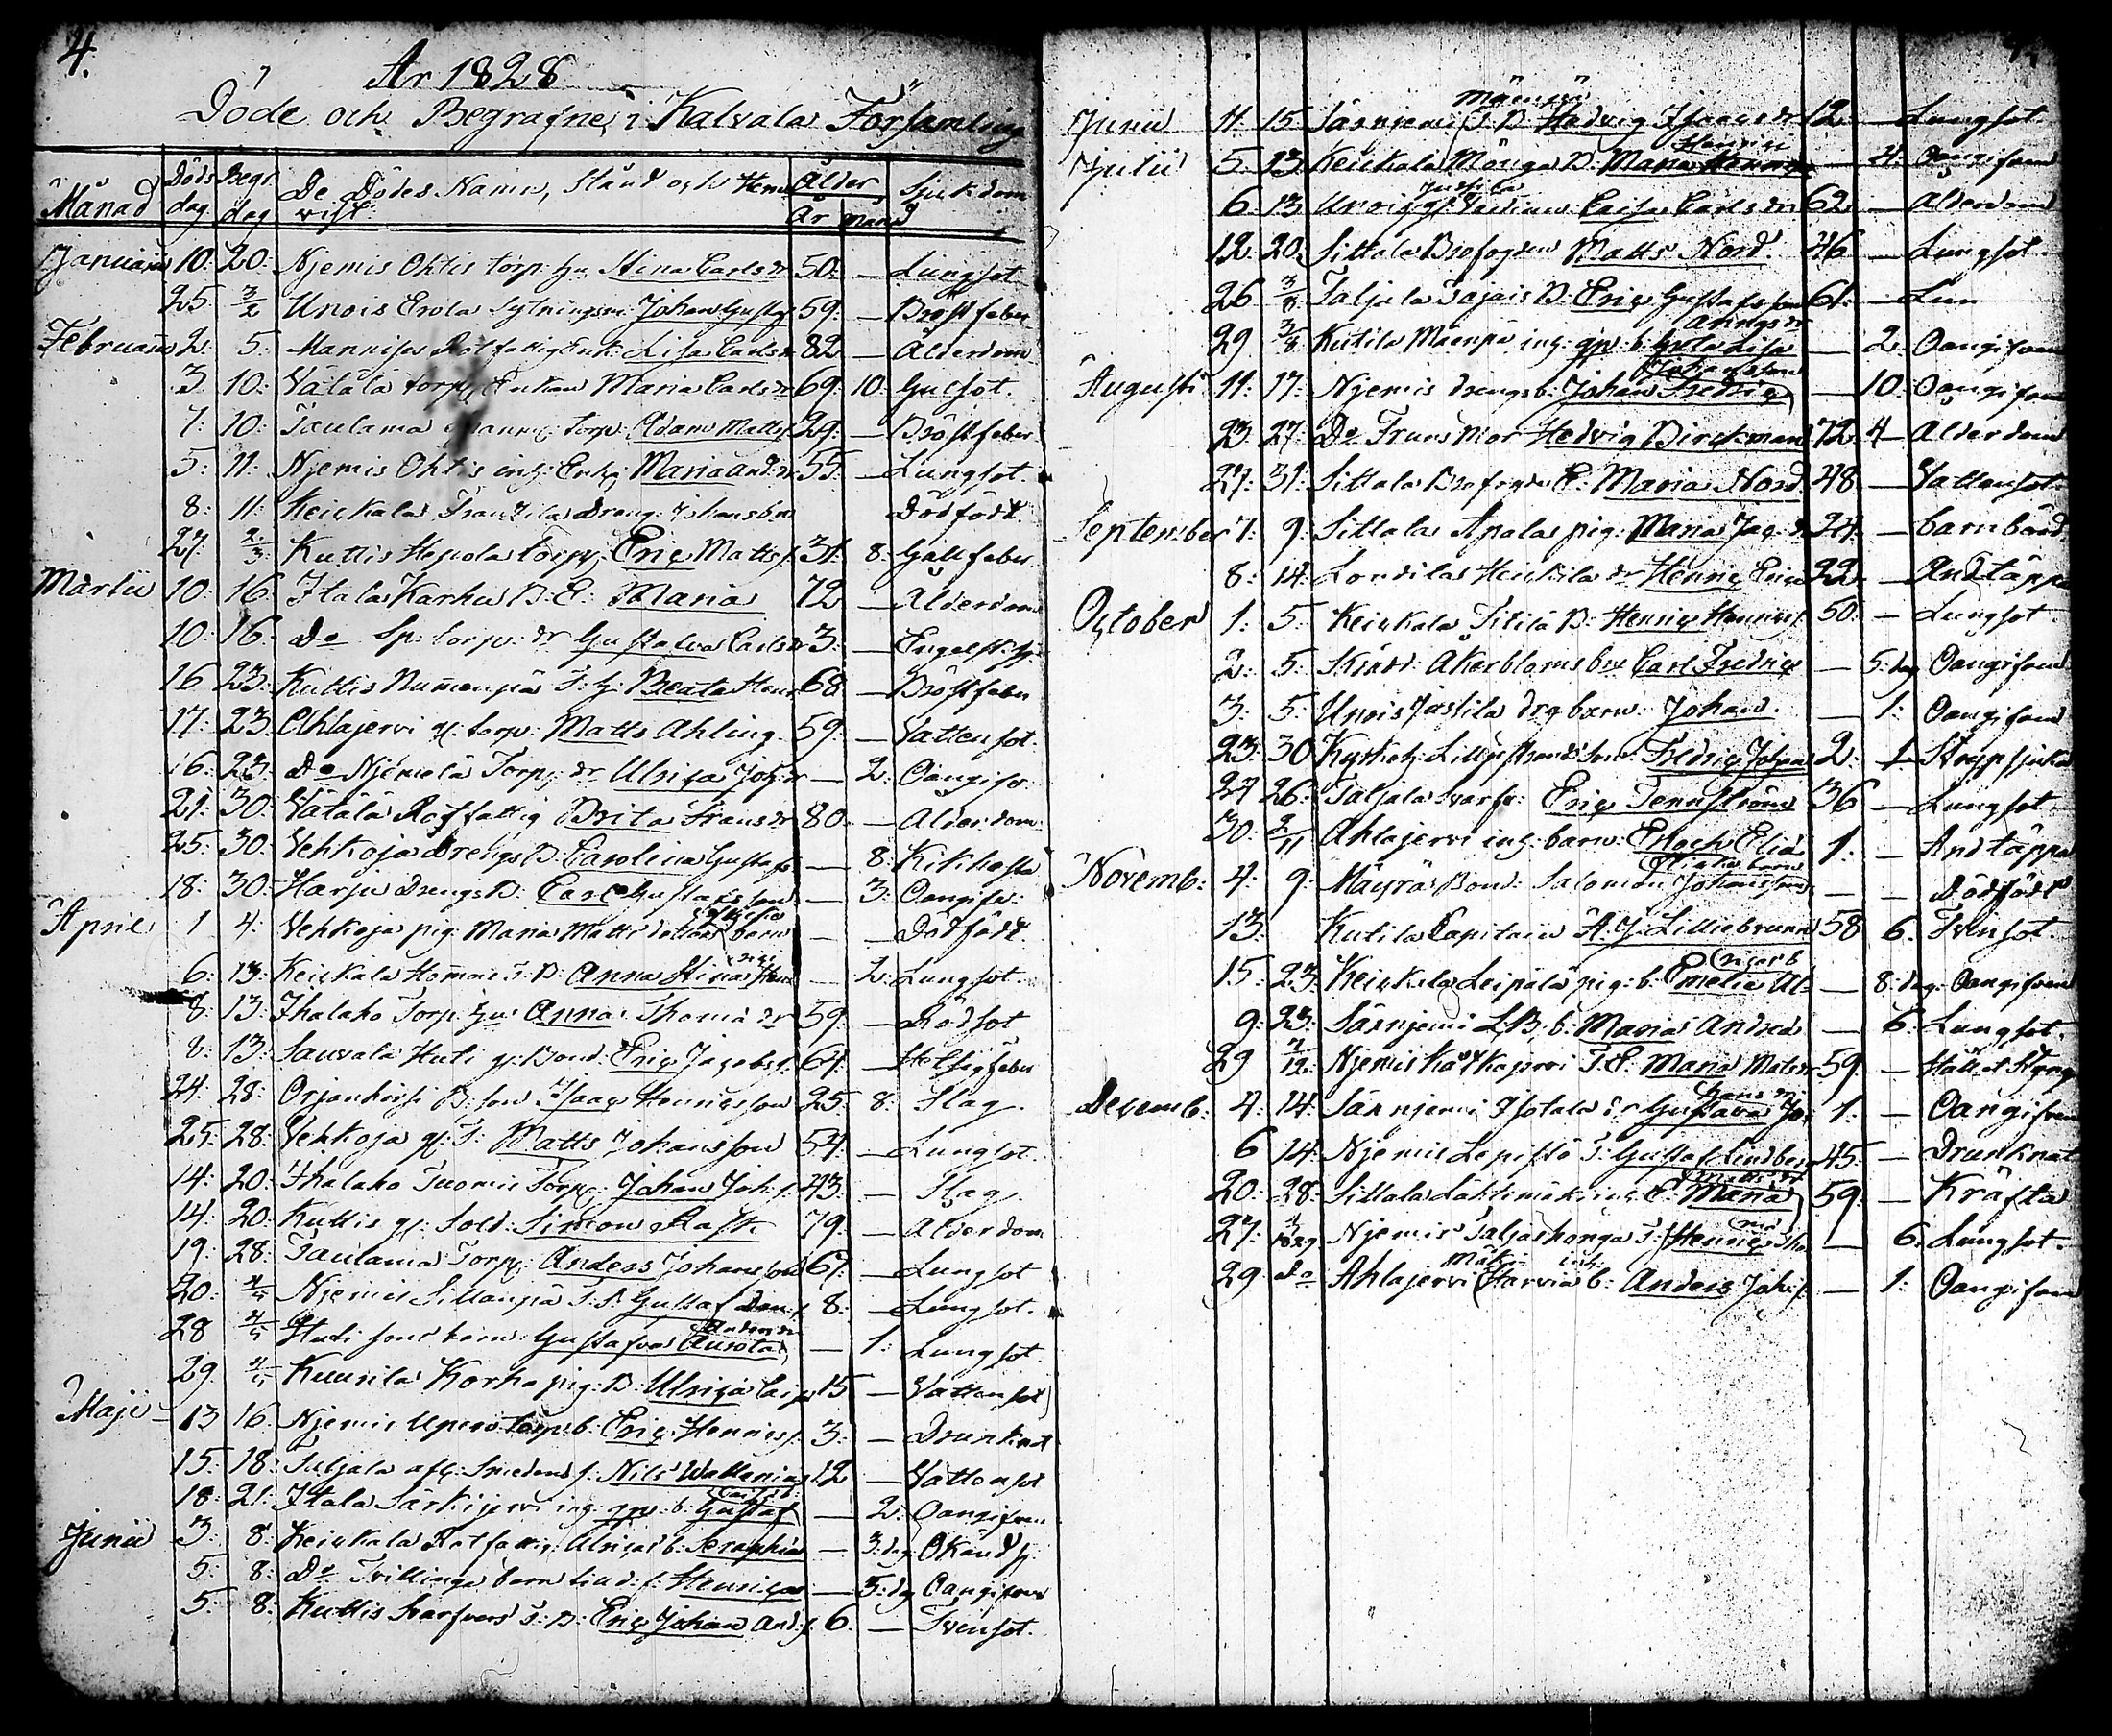 4.
År 1828
Döde och Begrafne i Kalvala Församling
Månad Döds dag Begr. dag De Dödes Namn, Stånd och Hemvist Ålder år månad Sjukdom
Januarii 10: 20: Njemis Ohtis torp: hu Stina Carlsdr 50: — Lungsot
25 3/2 Unois Erola Sytningsm: Johan Gustafs 59: — Bröstfeber
Februarii 2: 5: Mannisss Rotfattig Enk: Lisa Carlsdr 82 — Ålderdom
3 10: Vätälä torp: Enkan Maria Carlsdr 69: 10: Gulsot.
7: 10: Taulama torp: Adam Matts 29: — Bröstfeber
5: 11: Njemis Ohtis inh: Enk: Maria And: dr 55: — Lungsot.
8: 11: Keickala Franzila Dreng: Johans bn Dödfödt.
27 2/3 Kuttis Hepola torp: Eric Matts s. 31: 8: Gallfeber.
Martii 10: 16. Itala Karhu B: E: Maria 72 — Ålderdom
10: 16. Do Sp: torp: dr Gustafva Carlsdr 3: — Engelsk sj:
16 23: Kuttis Nummenpä T: h: Beata Henr 68 — Bröstfeber
17: 23. Ahlajervi gl: torp: Matts Ahling 59: — Vattensot.
16: 23: Do Njemelä Torp: dr Ulrica Joh: dr — 2: Oangifv:
21: 30: Vätälä Rotfattig Brita Fransdr 80. — Ålderdom.
25: 30: Vehkoja Drengs B: Carolina Gustafs — 8: Kikhosta
18: 30: Harju Drengs B: Carl Gustafsson — 3: Oangifv:
April 1 4: Vehkoja pig: Maria Matts dotters barn — — Dödfödt.
6: 13: Keickala Hommais T: B: Anna Stina Henr — 2: Lungsot.
8: 13: Ihalaho Torp: hu Anna Thomä dr 59: — Rödsot
8: 13: Sauvala Huti gl: Bond: Eric Jacobs s. 64: — Hetsigfeber
24: 28: Orjanhirsi B: son Isaac Henricsson 25 8: Slag.
25: 28: Vehkoja gl: T: Matts Johansson 54: — Lungsot.
14: 20: Ihalaho Tuomis Torp: Johan Joh: s. 43: — Slag
14: 20: Kuttis gl: Sold: Simon Rask 79: — Ålderdom
19: 28: Taulama Torp: Anders Johansson 67: — Lungsot
20: 4/5 Njemis Sillanpä T: S: Gustaf s. 8: — Lungsot.
28 4/5 Huti sons barn Gustafva Aurora Anders dr — 1: Lungsot.
29. 4/5 Kuurila Korho pig: B: Ulrica Caisa 15 — Vattensot
Maji 13 16. Njemis torps b: Eric Henrics s. 3: — Drunknat
15: 18: Taljala afl: Smedens s. Nils Wallenius 12 — Vattensot
18: 21: Itala Särkijervi inh: b: Gustaf — 2: Oangifven
Junii 3: 8: Keickala Rotfattig Ulricas b: Seraphia — 3: dag Okänd sj:
5: 8: Do Tvillinge barn Henrica — 5: dg Oangifven
5: 8: Kuttis Svarfvars T: B: Eric Johan And: s. 6. — Tvinsot.
Junii 11. 15. Särnjemi Mäenpä T: B: Hedvig Isaacs dr 12 — Lungsot.
Julii 5: 13. Keickala Mönga B: Maria Henrici — 4: Oangifven
6: 13 Unois Jussila gl: Caisa Carlsdr 62 — Ålderdom
12 20. Sittala Brofogden Matts Nord. 46 — Lungsot.
26 3/8 Taljala Jajais B: Eric Gustafsson 61: — Lun
29 3/8 Kutila Mäenpä inh: b: Gusta Lisa — 2: Oangifven
Augusti 11: 17: Njemis drengs b: Johan Fredric Johansson — 10: Oangifven
23. 27: Do Fruns Mor Hedvig Birckman 72 4 — Ålderdom
27: 31: Sittala Brofogde E: Maria Nord 48 — Vattensot.
September 7: 9: Sittala Apala pig: Maria Jac: dr 24: — barnbörd
8: 14: Londila Heickila dr Henric Erics 22. — Andtäppa
October 1: 5: Keickala Titilä B: Henric Henrics s. 50: — Lungsot
2: 5: Skrädd: Åkerbloms bn Carl Fredric — 5: dg Oangifven
3: 5: Unois Jussila drg barn: Johan. — 1: Oangifven
23: 30 Kyrkoh: Lilljestrands son Fredric Johan 2: 1 Strypsjuka
27 26: Taljala Svarfv: Eric Tennström 36 — Lungsot
30: 2/11 Ahlajervi inh: barn: Enoch Eliä 1: — Andtäppa
Novemb: 4: 9: Mäyrä Bond: Salomon Johansson barn — — Dödfödt
13: Kutila Capitain A. J. Lilliebrunn 58 6. Tvinsot.
15: 23. Keickala Leipälä pig: b: Emelia Ul= — 8: dag: Oangifven
9: 23: Särnjemi L.B: b: Maria Anders — 6: Lungsot.
29 7/12 Njemis Kackajervi T. E: Maria Matsdr 59. — Håll et Styng
Decemb: 4: 14: Särnjemi Isotalo dr Gustava Jo hans dr 1: — Oangifven
6 14: Njemis Lepistö T: Gustaf Lindberg 45: — Drunknat
20: 28: Sittala Lähtimäki inh: E: Maria 59: — Kräfta
27: 1/1829 Njemis Taljashonga T: Henric — 6. Lungsot.
29 Do Ahlajervi Mäki Harvia inh b: Anders Joh: s. — 1: Oangifven